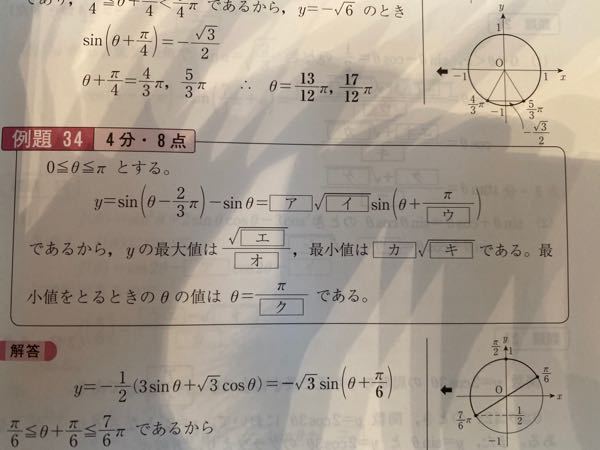 π/4≦θ+π/4<5/4π であるから，y=−√6 のとき
sin(θ+π/4)=−√3/2
θ+π/4=4/3π，5/3π ∴ θ=13/12π，17/12π
y
1
O
−1
1
x
4/3π
−1
5/3π
−√3/2
例題 34 4分・8点
0≦θ≦π とする。
y=sin(θ−2/3π)−sinθ=ア√イ sin(θ+π/ウ)
であるから，y の最大値は √エ/オ，最小値は カ√キ である。最
小値をとるときの θ の値は θ=π/ク である。
解答
y=−1/2(3sinθ+√3cosθ)=−√3sin(θ+π/6)
π/6≦θ+π/6≦7/6π であるから
π/2
y
1
π/6
O
x
7/6π
1/2
−1